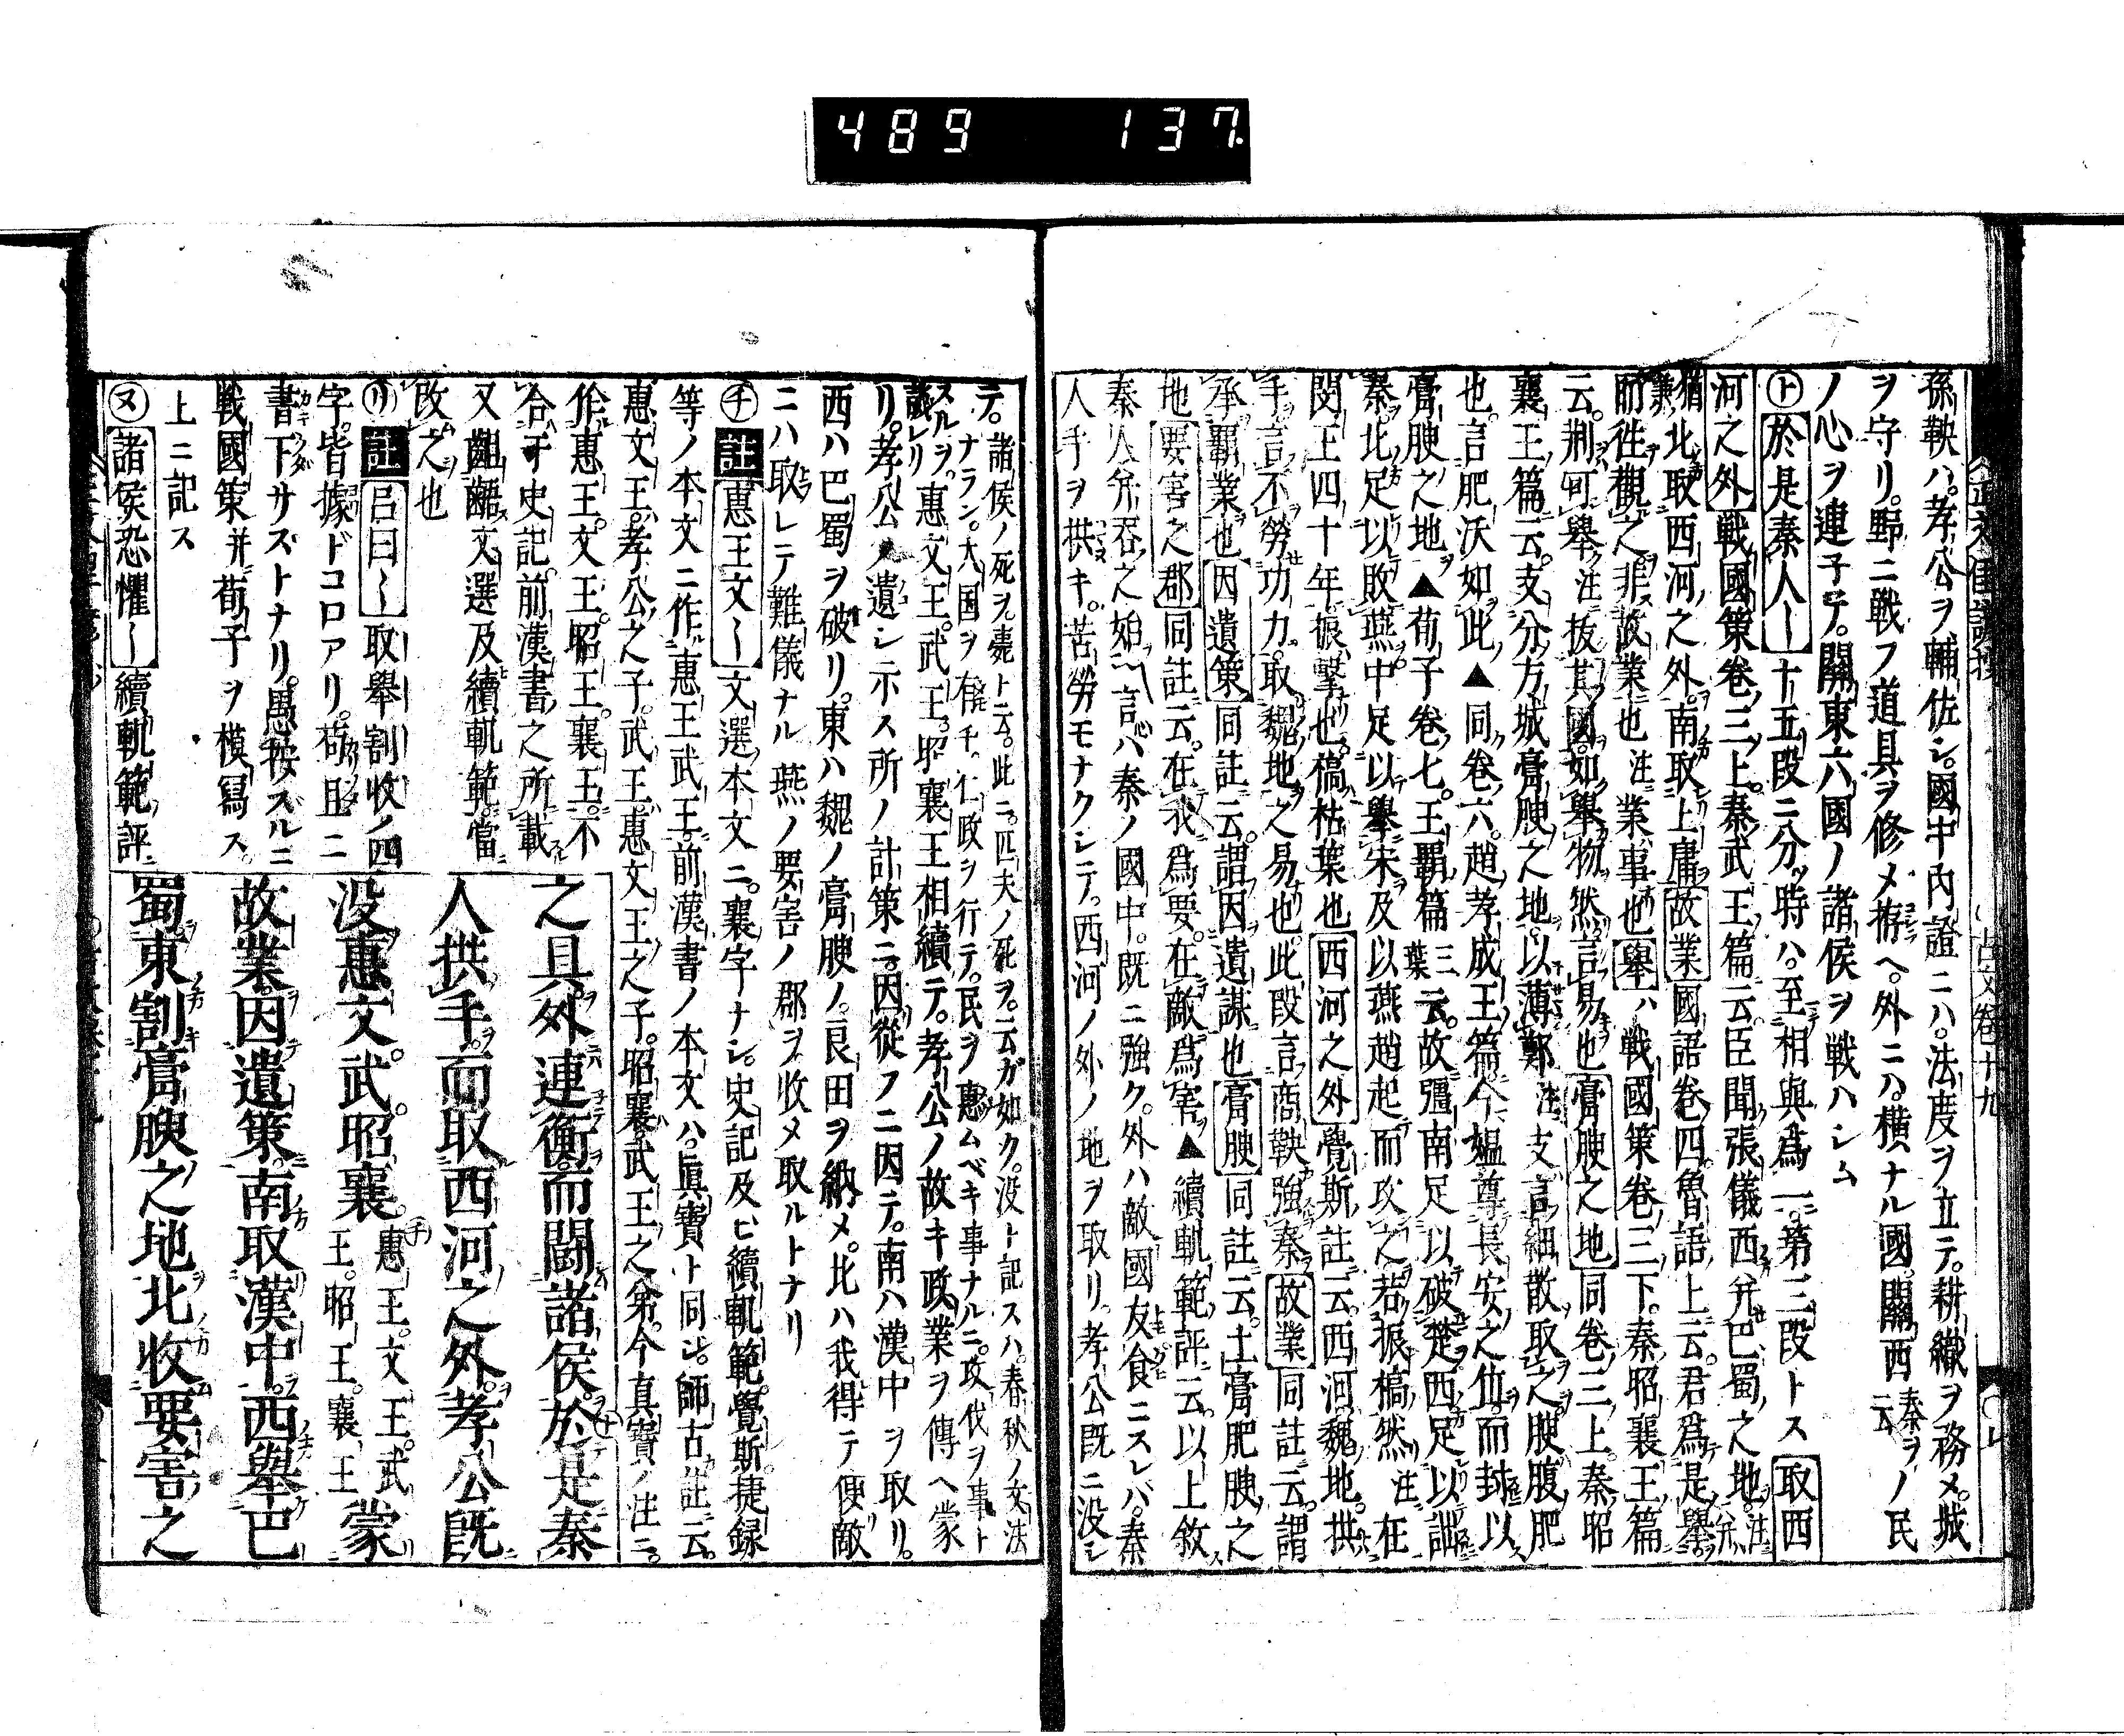 489 137
孫鞅ハ。孝公ヲ輔佐シ。國中内證ニハ。法度ヲ立テ。耕織ヲ務メ。城
ヲ守リ。野ニ戰フ道具ヲ修メ拵ヘ。外ニハ。横ナル國。關西秦ヲ云ノ民
ノ心ヲ連子テ。關東六國ノ諸侯ヲ戰ハシム
㋣於是秦人〵十五段ニ分ツ時ハ。至相與爲一。第三段トス取西
河之外戰國策卷三上。秦武王篇云。臣聞張儀西并巴蜀之地。注并ハ
猶兼北取西河之外。南取上庸故業國語卷四。魯語上云。君爲是舉。
而徃觀之。非故業也注業事也舉ハ戰國策卷三下。秦昭襄王篇
云。荆可舉注拔其國。如舉物然。言易也膏腴之地同卷三上。秦昭
襄王篇云。支分方城膏腴之地。以薄鄭注支言細散取之。腴腹肥
也。言肥沃如此▲同卷六。趙孝成王篇今媼尊長安之位。而封以
膏腴之地▲荀子卷七。王覇篇三葉云。故彊南足以破楚。西足以詘
秦。北足以敗燕。中足以舉宋。及以燕趙起而攻之。若振槁然注在
閔王四十年。振擊也。槁枯葉也西河之外覺斯註云。西河魏地。拱
手言不勞功力。取魏地之易也。此段言商鞅強秦故業同註云。謂
承覇業也因遺策同註云。謂因遺謀也膏腴同註云。土膏肥腴之
地要害之郡同註云。在我爲要。在敵爲害▲續軌範評云。以上敘
秦人并呑之始〵言ハ秦ノ國中。既ニ強ク。外ハ敵國友食ニスレバ。秦
人手ヲ拱キ。苦勞モナクシテ。西河ノ外ノ地ヲ取リ。孝公既ニ没シ
古文卷十九
テ。諸侯ノ死ヲ。薨ト云。此ニ。匹夫ノ死ヲ。云ガ如ク。没ト記スハ。春秋ノ文法
ナラン。大国ヲ有チ。仁政ヲ行テ。民ヲ惠ムベキ事ナルニ。攻伐ヲ事ト
スルヲ。議レリ惠文王。武王。昭襄王相續テ。孝公ノ故キ政業ヲ傳ヘ蒙
リ。孝公ノ遺シ示ス所ノ計策ニ。因從フニ因テ。南ハ漢中ヲ取リ。
西ハ巴蜀ヲ破リ。東ハ魏ノ膏腴ノ。良田ヲ納メ。北ハ我得テ便。敵
ニハ取レテ難儀ナル燕ノ要害ノ郡ヲ收メ取ルトナリ
㋠註惠王文〵文選本文ニ。襄字ナシ。史記及ビ續軌範。覺斯捷録
等ノ本文ニ作惠王武王。前漢書ノ本文ハ。眞寶ト同シ。師古註云。
惠文王。孝公之子。武王。惠文王之子。昭襄武王之弟。今真寶ノ注ニ。
作惠王。文王。昭王。襄王。不
合于史記。前漢書之所載。
又齟齬文選及續軌範。當
改之也
㋷註呂曰〵取舉割收ノ四
字。皆據ドコロアリ。苟且ニ
書下サストナリ。愚按ズルニ
戰國策并荀子ヲ模冩ス。
上ニ記ス
㋦諸侯恐懼〵續軌範評
之具。外連衡。而鬪諸侯。於是秦
人拱手。而取西河之外。孝公既
没。惠文。武。昭襄。惠王。文王。武王。昭王。襄王蒙
故業。因遺策。南取漢中。西舉巴
蜀。東割膏腴之地。北收要害之